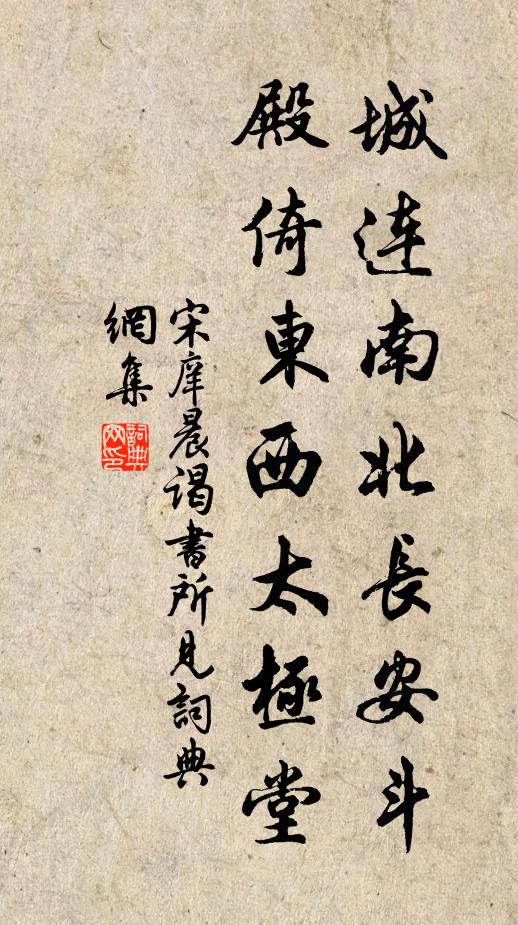 城連南北長安斗
殿倚東西太極堂
宋庠晨谒書所見詞典
網集
詞典
网印